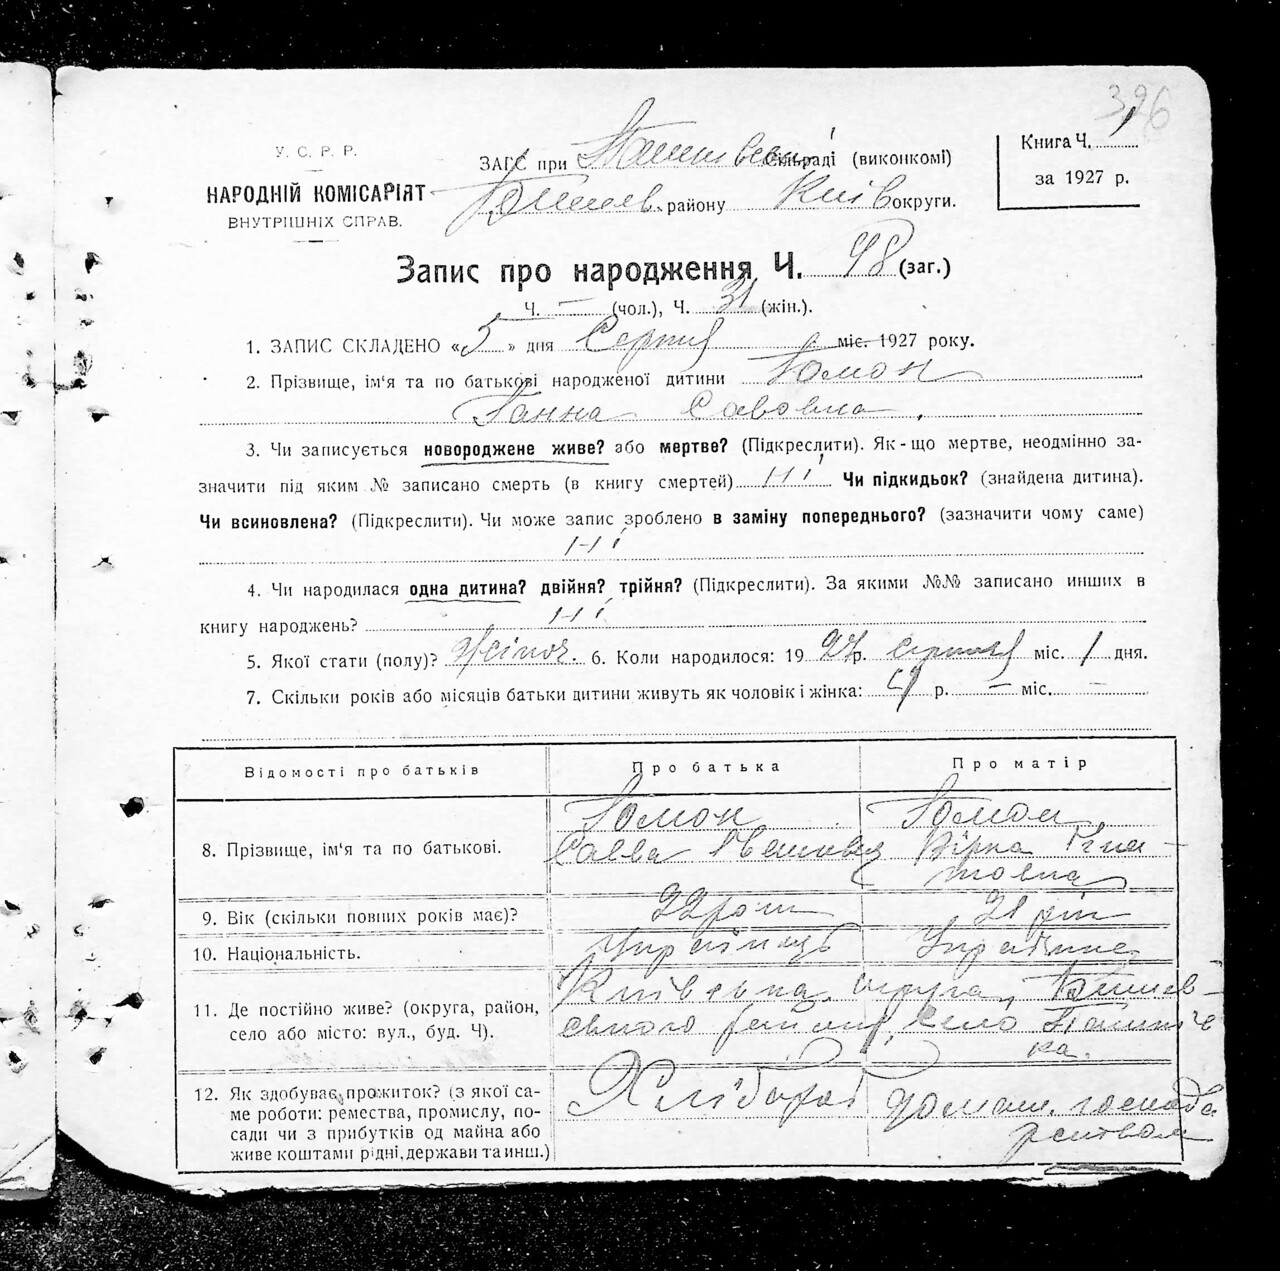 326
У. С. Р. Р.
НАРОДНІЙ КОМІСАРІЯТ
ВНУТРІШНІХ СПРАВ.
ЗАГС при Сільраді (виконкомі)
району Київ округи.
Книга Ч. 1
за 1927 р.
Запис про народження Ч. 48 (заг.)
Ч. — (чол.), Ч. 31 (жін.).
1. ЗАПИС СКЛАДЕНО «5» дня Серпня міс. 1927 року.
2. Прізвище, ім'я та по батькові народженої дитини Гомон
Ганна Савовна.
3. Чи записується новороджене живе? або мертве? (Підкреслити). Як-що мертве, неодмінно за-
значити під яким № записано смерть (в книгу смертей) Ні Чи підкидьок? (знайдена дитина).
Чи всиновлена? (Підкреслити). Чи може запис зроблено в заміну попереднього? (зазначити чому саме)
Ні
4. Чи народилася одна дитина? двійня? трійня? (Підкреслити). За якими №№ записано инших в
книгу народжень? Ні
5. Якої стати (полу)? Жіноч. 6. Коли народилося: 1927 р. серпня міс. 1 дня.
7. Скільки років або місяців батьки дитини живуть як чоловік і жінка: р. — міс. —
Відомості про батьків
Про батька
Про матір
8. Прізвище, ім'я та по батькові.
Гомон Гомон
Савва Івановч Вірка Ігна-
товна
9. Вік (скільки повних років має)?
22 роки 21 рік
10. Національність.
Українець Українка
11. Де постійно живе? (округа, район,
село або місто: вул., буд. Ч).
Київська округа,
району, село
ка.
12. Як здобуває прожиток? (з якої са-
ме роботи: ремества, промислу, по-
сади чи з прибутків од майна або
живе коштами рідні, держави та инш.)
Хлібороб домашн. господа
рством